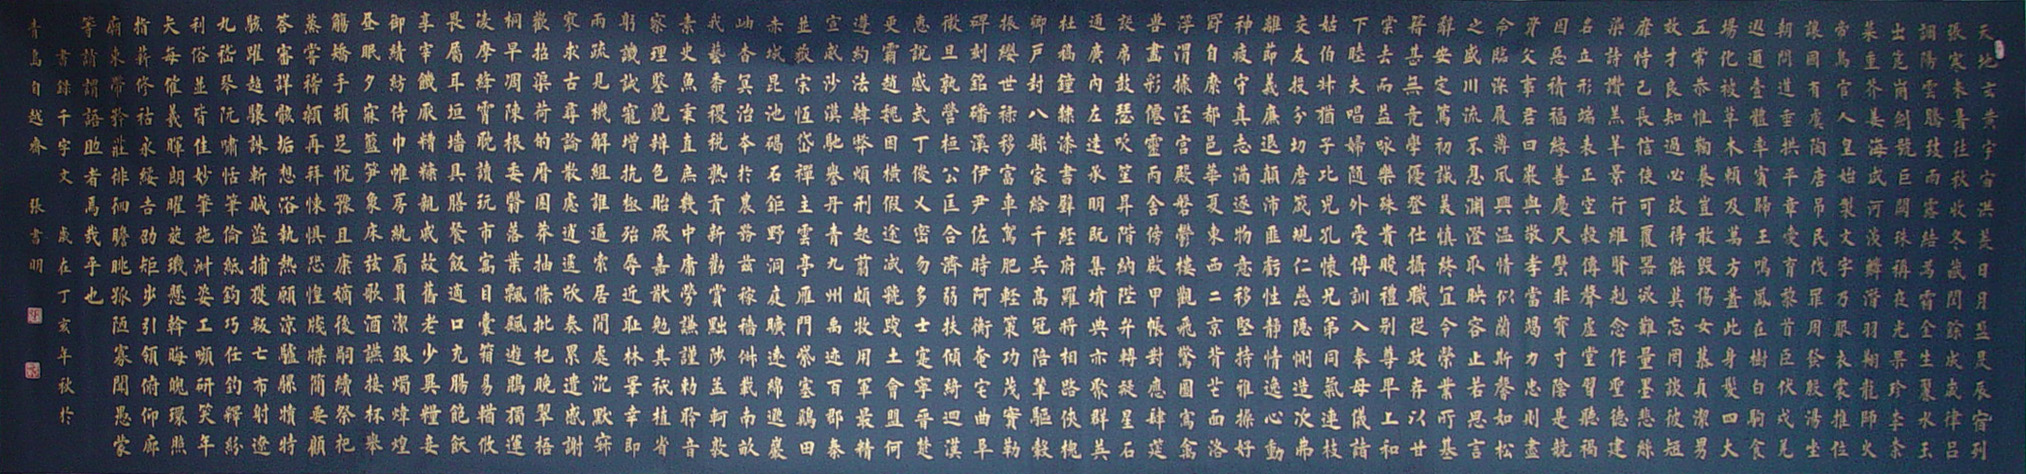 天地玄黃宇宙洪荒日月盈昃辰宿列
張寒來暑往秋收冬藏閏餘成歲律呂
調陽雲騰致雨露結為霜金生麗水玉
出崑崗劍號巨闕珠稱夜光果珍李柰
菜重芥薑海鹹河淡鱗潛羽翔龍師火
帝鳥官人皇始製文字乃服衣裳推位
讓國有虞陶唐弔民伐罪周發殷湯坐
朝問道垂拱平章愛育黎首臣伏戎羌
遐邇壹體率賓歸王鳴鳳在樹白駒食
場化被草木賴及萬方蓋此身髮四大
五常恭惟鞠養豈敢毀傷女慕貞潔男
效才良知過必改得能莫忘罔談彼短
靡恃己長信使可覆器欲難量墨悲絲
染詩讚羔羊景行維賢剋念作聖德建
名立形端表正空谷傳聲虛堂習聽禍
因惡積福緣善慶尺璧非寶寸陰是競
資父事君曰嚴與敬孝當竭力忠則盡
命臨深履薄夙興溫凊似蘭斯馨如松
之盛川流不息淵澄取映容止若思言
辭安定篤初誠美慎終宜令榮業所基
籍甚無竟學優登仕攝職從政存以甘
棠去而益詠樂殊貴賤禮別尊卑上和
下睦夫唱婦隨外受傅訓入奉母儀諸
姑伯叔猶子比兒孔懷兄弟同氣連枝
交友投分切磨箴規仁慈隱惻造次弗
離節義廉退顛沛匪虧性靜情逸心動
神疲守真志滿逐物意移堅持雅操好
爵自縻都邑華夏東西二京背芒面洛
浮渭據涇宮殿磐鬱樓觀飛驚圖寫禽
獸畫彩僊靈丙舍傍啟甲帳對楹肆筵
設席鼓瑟吹笙昇階納陛弁轉疑星右
通廣內左達承明既集墳典亦聚群英
杜稿鍾隸漆書壁經府羅將相路俠槐
卿戶封八縣家給千兵高冠陪輦驅轂
振纓世祿侈富車駕肥輕策功茂實勒
碑刻銘磻溪伊尹佐時阿衡奄宅曲阜
微旦孰營桓公匡合濟弱扶傾綺迴漢
惠說感武丁俊乂密勿多士寔寧晉楚
更霸趙魏困橫假途滅虢踐土會盟何
遵約法韓弊煩刑起翦頗牧用軍最精
宣威沙漠馳譽丹青九州禹迹百郡秦
並嶽宗恆岱禪主雲亭雁門紫塞雞田
赤城昆池碣石鉅野洞庭曠遠綿邈巖
岫杳冥治本於農務茲稼穡俶載南畝
我藝黍稷稅熟貢新勸賞黜陟孟軻敦
素史魚秉直庶幾中庸勞謙謹勅聆音
察理鑒貌辨色貽厥嘉猷勉其祗植省
躬譏誡寵增抗極殆辱近恥林皋幸即
兩疏見機解組誰逼索居閒處沉默寂
寥求古尋論散慮逍遙欣奏累遣慼謝
歡招渠荷的歷園莽抽條枇杷晚翠梧
桐早凋陳根委翳落葉飄颻遊鵾獨運
凌摩絳霄耽讀玩市寓目囊箱易輶攸
畏屬耳垣墻具膳餐飯適口充腸飽飫
享宰饑厭糟糠親戚故舊老少異糧妾
御績紡侍巾帷房紈扇員潔銀燭煒煌
晝眠夕寐藍筍象床弦歌酒讌接杯舉
觴矯手頓足悅豫且康嫡後嗣續祭祀
蒸嘗稽顙再拜悚懼恐惶牋牒簡要顧
答審詳骸垢想浴執熱願涼驢騾犢特
駭躍超驤誅斬賊盜捕獲叛亡布射遼
丸嵇琴阮嘯恬筆倫紙鈞巧任釣釋紛
利俗並皆佳妙毛施淑姿工嚬研笑年
矢每催羲暉朗曜旋璣懸斡晦魄環照
指薪修祜永綏吉劭矩步引領俯仰廊
廟束帶矜莊徘徊瞻眺孤陋寡聞愚蒙
等誚謂語助者焉哉乎也
書錄千字文 歲在丁亥年秋於
青島自越齋 張書明